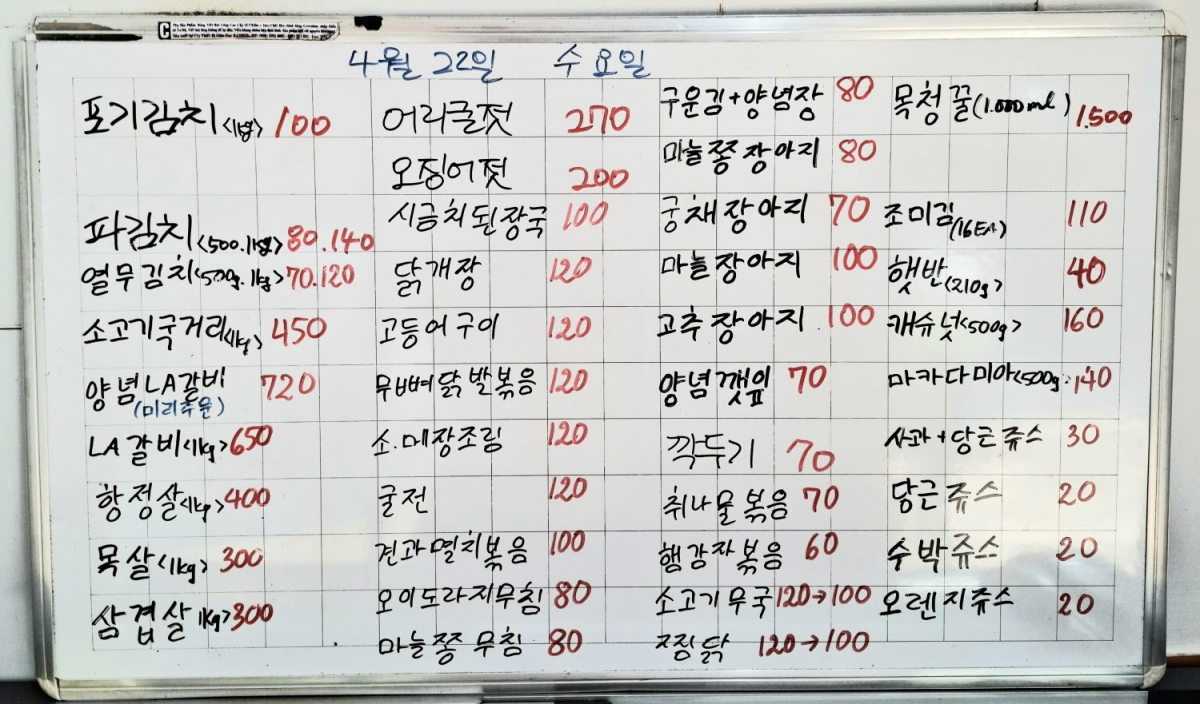 4월 22일 수요일
포기김치 <1kg> 100
파김치 <500.1kg> 80.140
열무김치 <500g.1kg> 70.120
소고기국거리 <1kg> 450
양념LA갈비 720
(미리주문)
LA갈비 <1kg> 650
항정살 <1kg> 400
목살 <1kg> 300
삼겹살 1kg> 300
어리굴젓 270
오징어젓 200
시금치된장국 100
닭개장 120
고등어구이 120
무뼈닭발볶음 120
소.메장조림 120
굴전 120
견과멸치볶음 100
오이도라지무침 80
마늘쫑무침 80
구운김+양념장 80
마늘쫑장아지 80
궁채장아지 70
마늘장아지 100
고추장아지 100
양념깻잎 70
깍두기 70
취나물볶음 70
햄감자볶음 60
소고기무국 120→100
찜닭 120→100
목청꿀(1.000ml) 1.500
조미김(16EA) 110
햇반<210g> 40
캐슈넛<500g> 160
마카다미아<500g. 140
사과+당근쥬스 30
당근쥬스 20
수박쥬스 20
오렌지쥬스 20